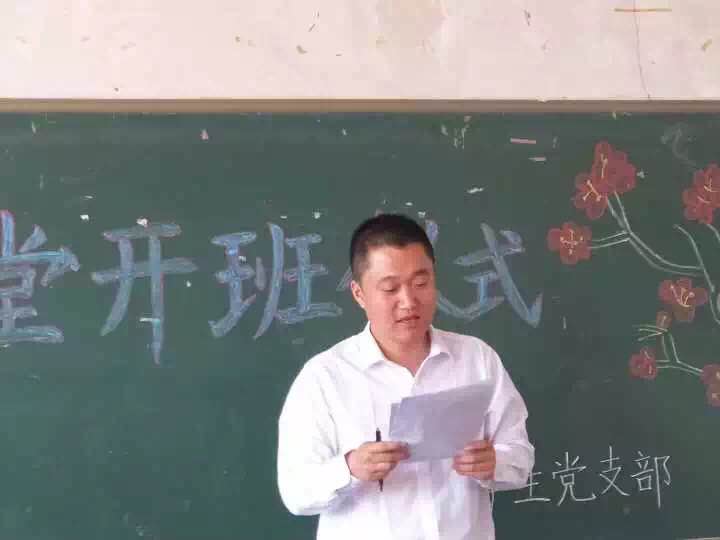 堂开班仪式
生党支部